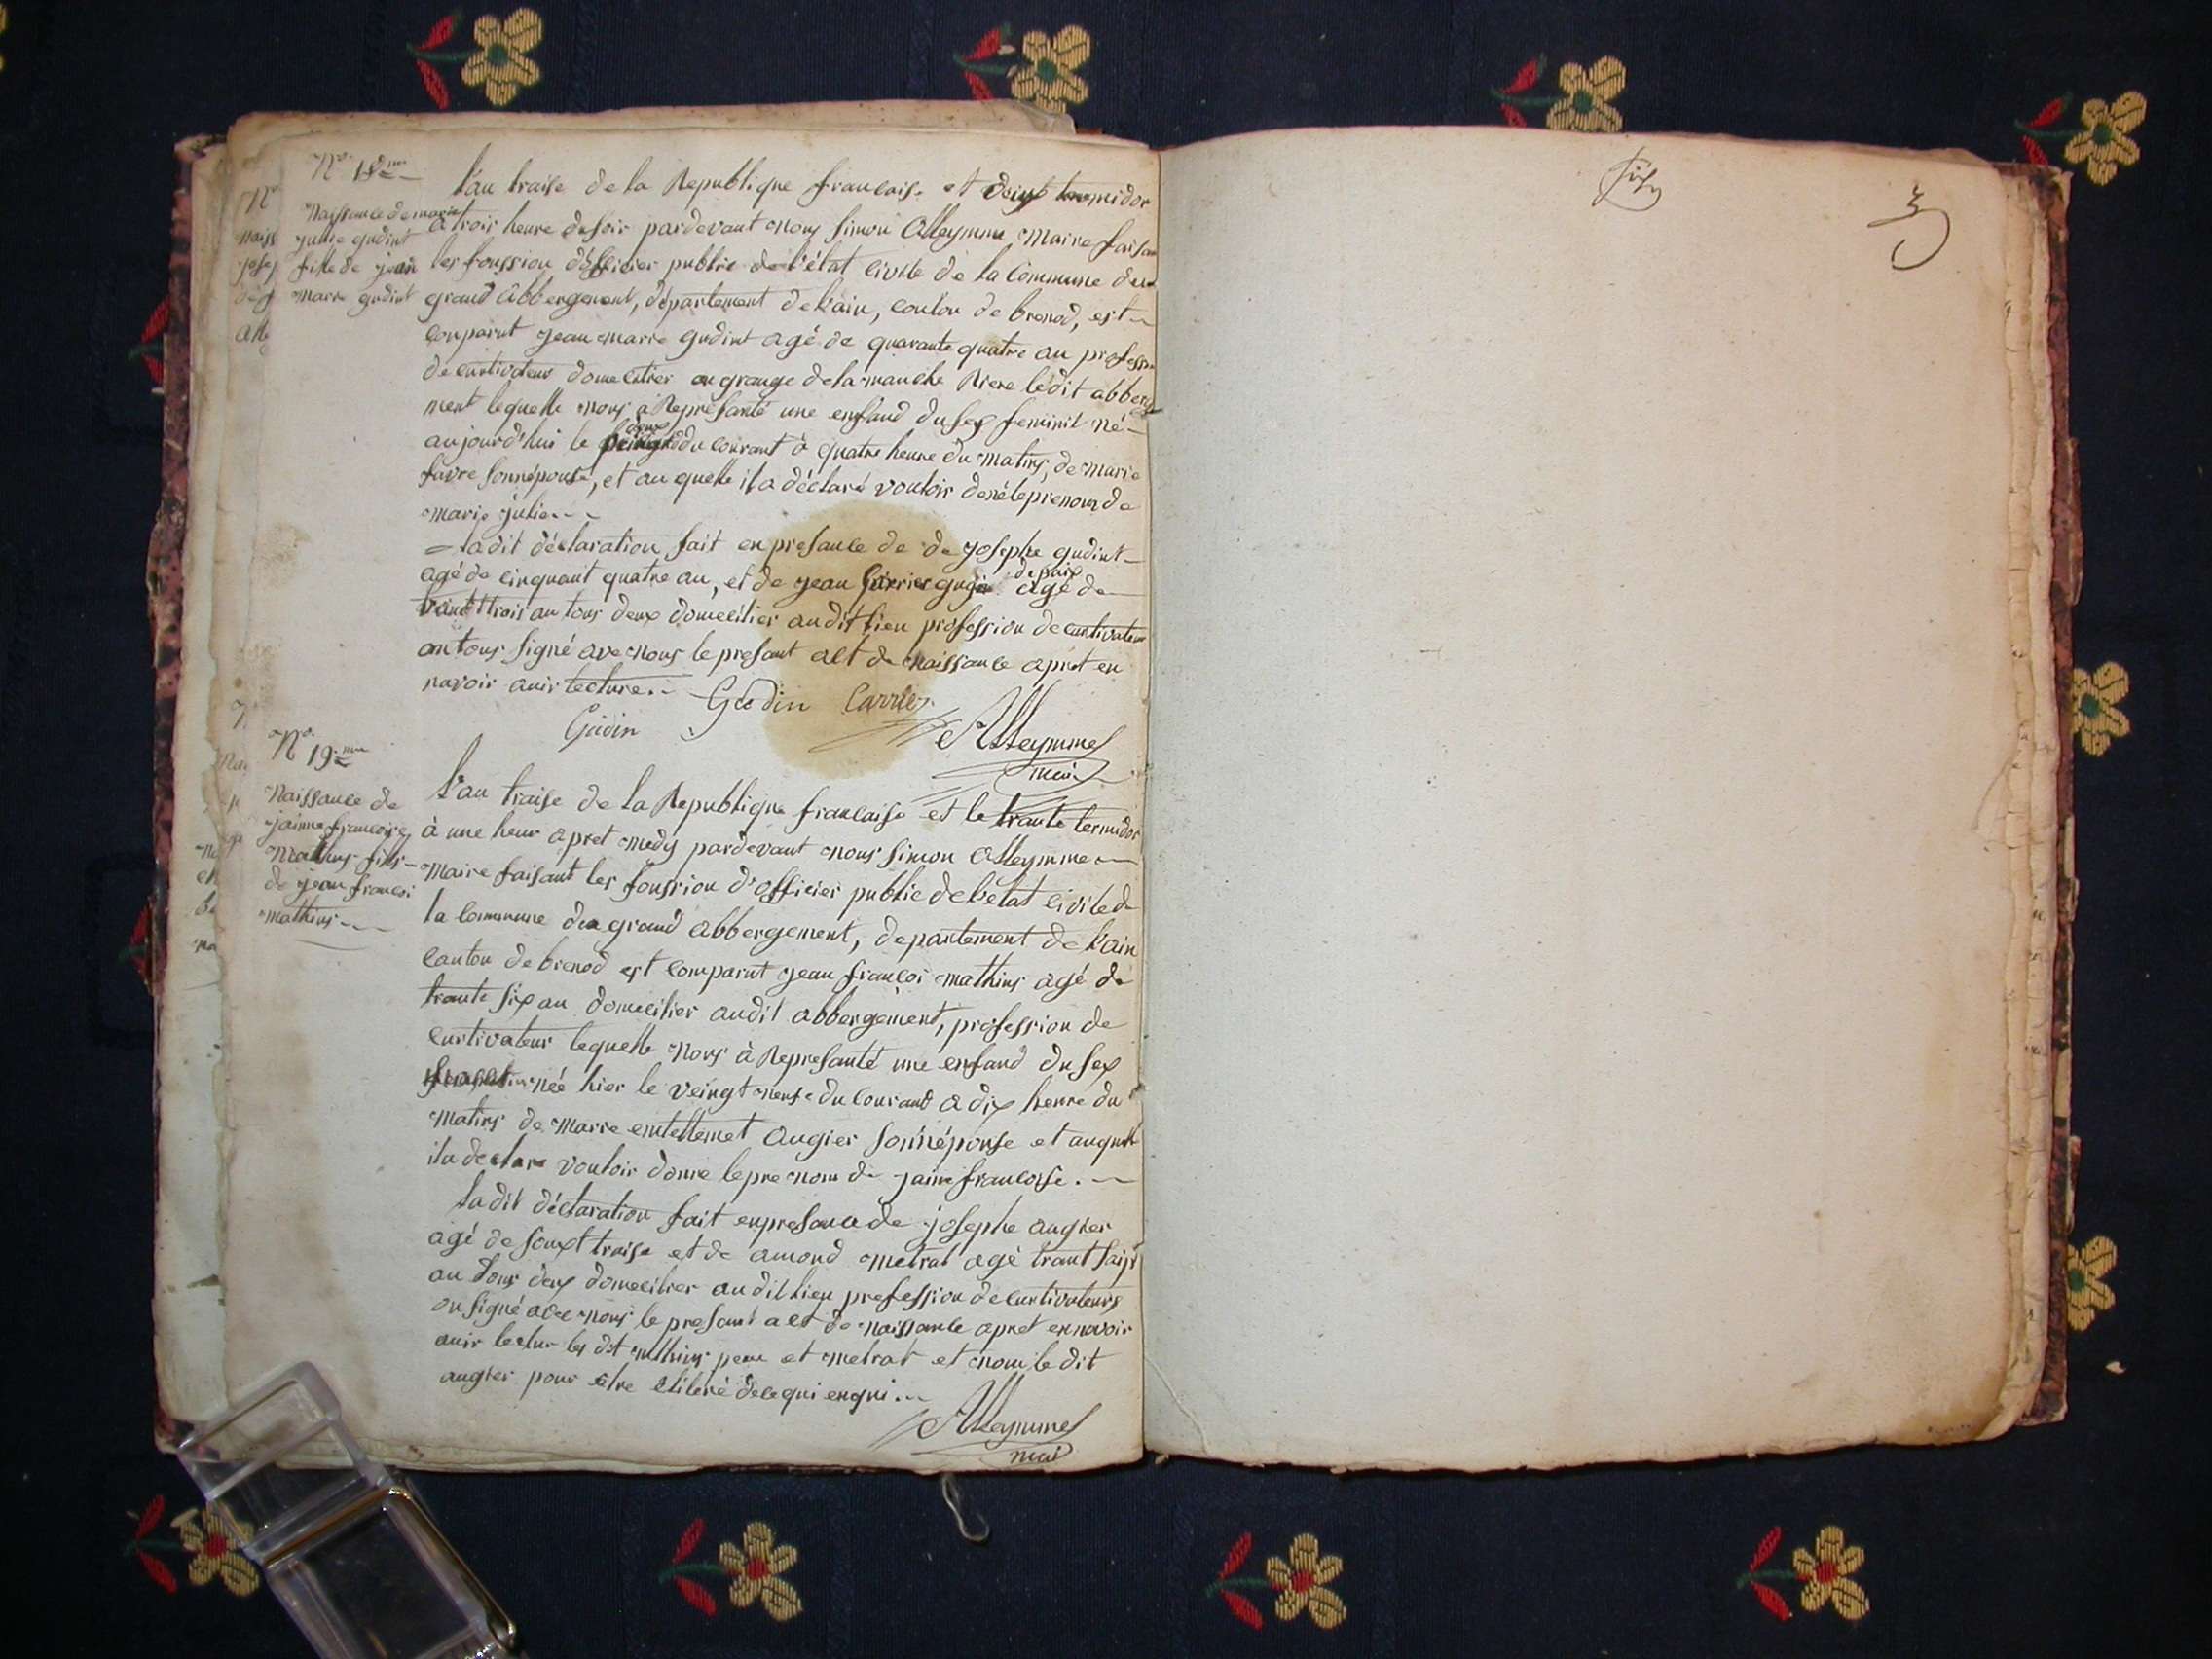 N.º 18.me
Naissance de marie
julie gudint
fille de jean
marie gudint
L'an traise de la Republique francaise et deux termidor
a trois heure du soir pardevant nous simon Alleymme Maire faisan
les foussion d'officier public de l'état civile de la commune du
grand abbergement, département de l'ain, canton de brenod, est
comparut jean marie gudint agé de quarante quatre an professi
de curtivateur domecilier au grange de la manche Riere ledit abberg
ment lequelle nous a Represanté une enfand du sex feminit né
aujourd'hui le deux du courant à quatre heure du matins, de marie
favre sonnépouse, et au quelle il a déclaré vouloir donéleprenom de
marie julie
ladit déclaration fait en presance de de josephe gudint
agé de cinquant quatre an, et de jean Carrier agé de
vaint trois an tous deux domecilier audit lieu profession de curtivateur
on tous signé avec nous le presant act de naissance apret en
navoir auir lecture.
Goddin Carrier
Gudin
Alleymme
mai
N.º 19.me
Naissance de
jainne francoise
Mathius fille
de jean francoi
mathius
L'an traise de la Republique francaise et le trante termidor
à une heur apret medy pardevant nous simon Alleymme
maire faisant les foussion d'officier public de l'etat civile de
la commune du grand abbergement, departement de l'ain
canton de brenod est comparut jean françoi mathius agé de
trante six an domecilier audit abbergement, profession de
curtivateur lequelle nous à Represanté une enfand du sex
née hier le veingt neufe du courant a dix heure du
matins de Marie augier sonnéponse et auquelle
il a declare vouloir donne le pre nom de jaine francoise.
ladit déclaration fait enpresance de josephe augier
agé de traise et de amond metrat agé trant
an tous deux domecilier audit lieu profession de curtivateurs
on signé avec nous le presant act de naissance apret ennavoir
auir lectur les dit mathius pere et metrat et nom le dit
augier pour etre de ce qui enqui
Alleymme
mai
3